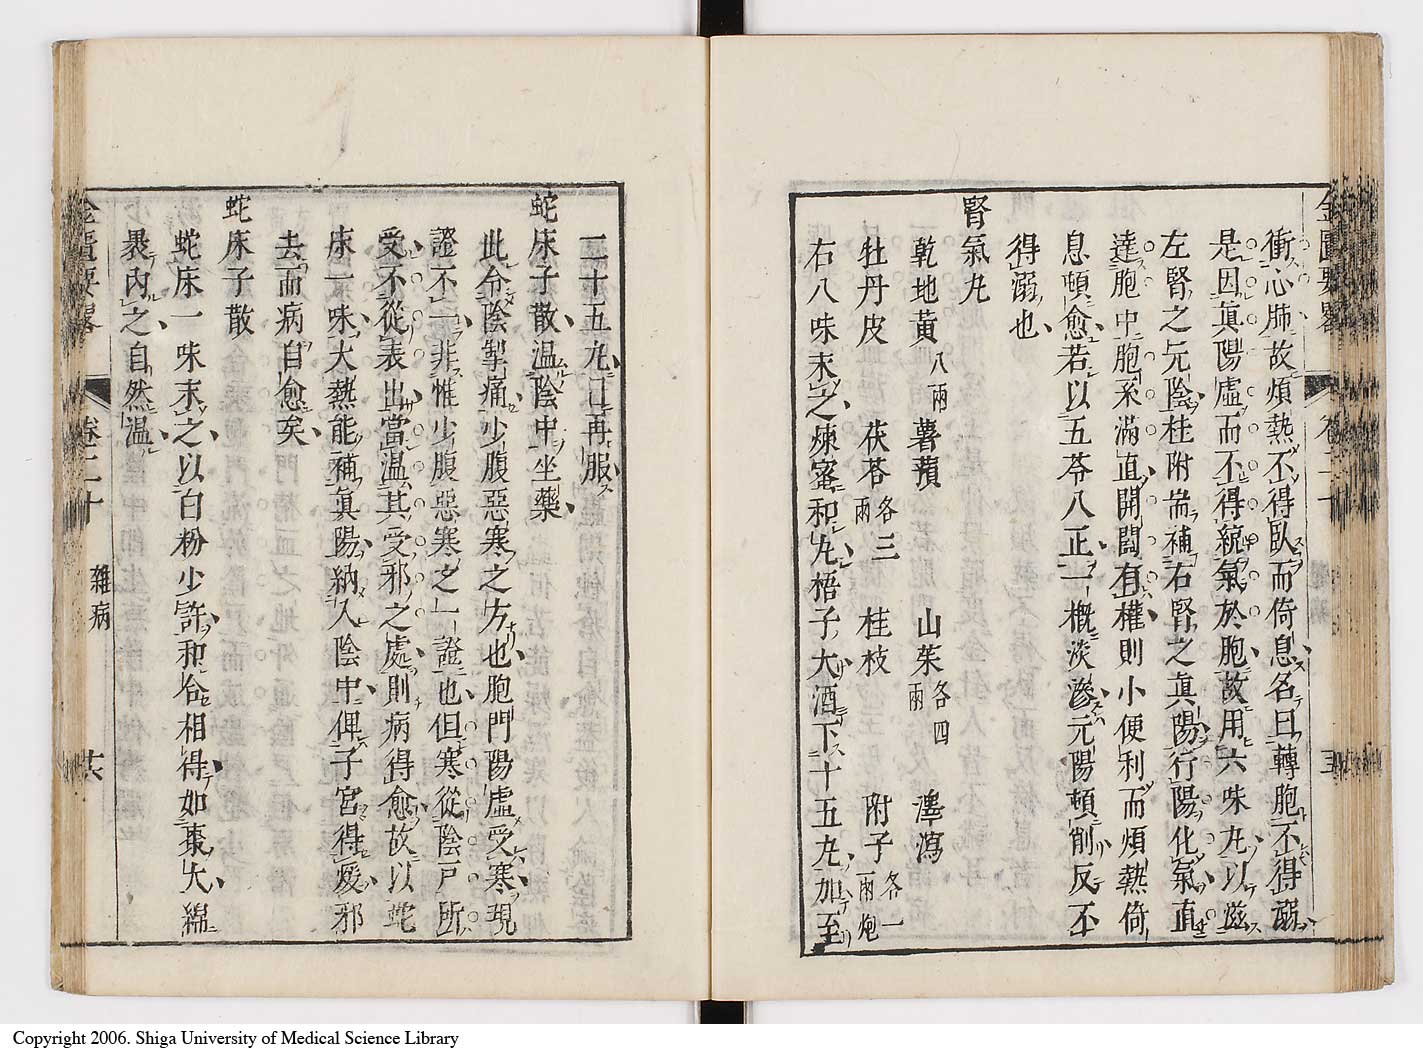 衝心肺故煩熱不得臥而倚息名曰轉胞不得溺
是因眞陽虛而不得統氣於胞故用六味丸以滋
左腎之元陰桂附耑補右腎之眞陽行陽化氣直
達胞中胞系滿直開闔有權則小便利而煩熱倚
息頓愈若以五苓八正一概淡滲元陽頓削反不
得溺也
腎氣丸
乾地黃八兩 薯蕷 山茱各四兩 澤瀉
牡丹皮 茯苓各三兩 桂枝 附子各一兩炮
右八味末之煉蜜和丸梧子大酒下十五丸加至
二十五丸日再服
蛇床子散温陰中坐藥
此令陰掣痛少腹惡寒之方也胞門陽虛受寒現
證不一非惟少腹惡寒之一證也但寒從陰戶所
受不從表出當温其受邪之處則病得愈故以蛇
床一味大熱能補眞陽納入陰中俾子宮得煖邪
去而病自愈矣
蛇床子散
蛇床一味末之以白粉少許和合相得如棗大綿
裹內之自然温
金匱要畧 卷二十 雜病
Copyright 2006. Shiga University of Medical Science Library